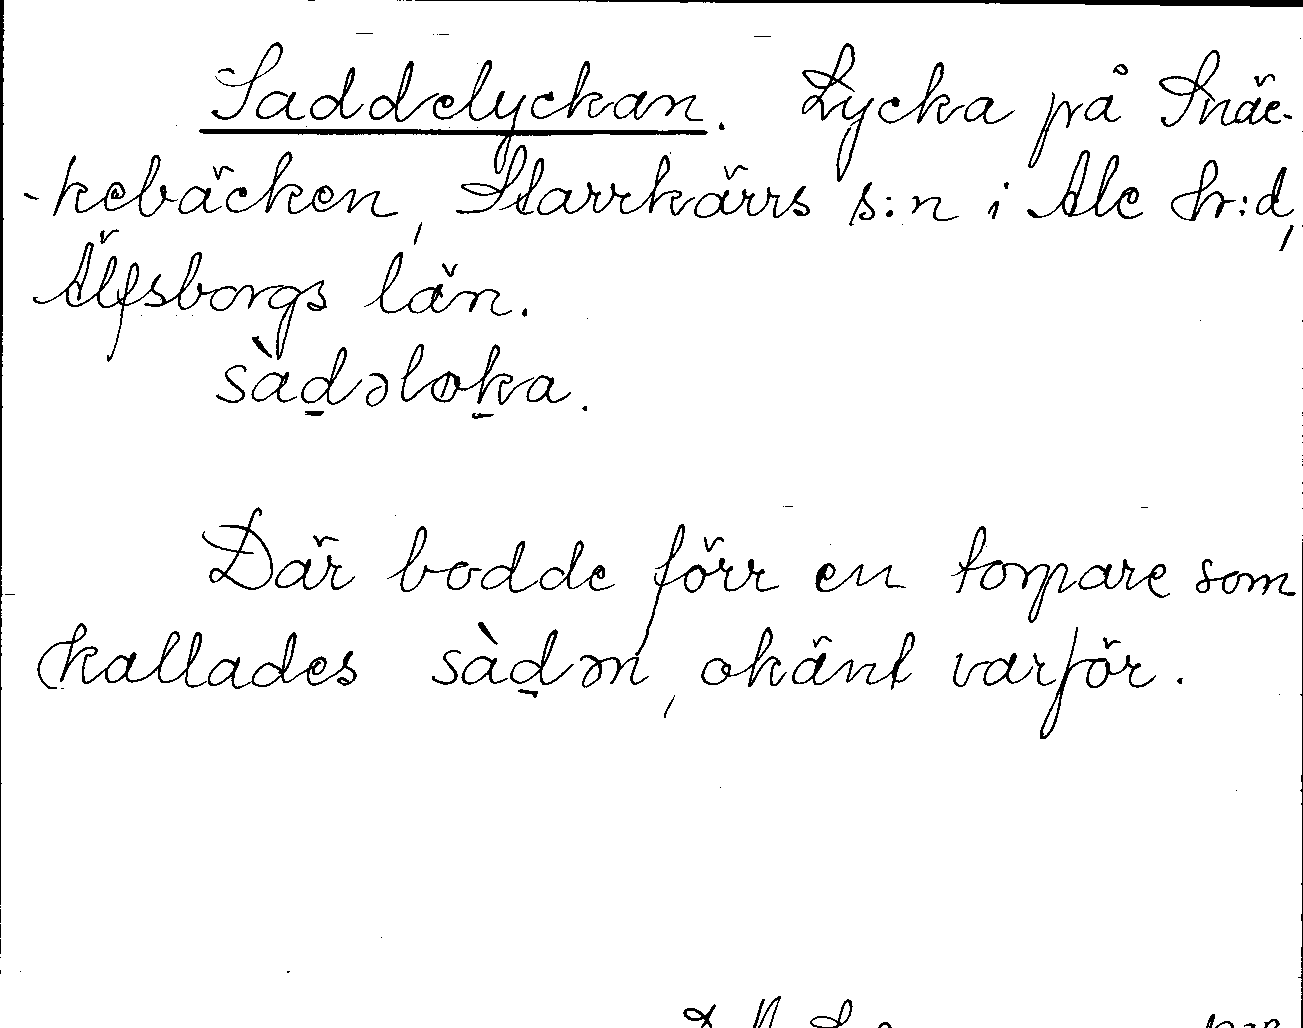 Saddelyckan. Lycka på Snäc-
-kebäcken, Starrkärrs s:n i Ale hr:d,
Älfsborgs län.
sàd̲əlo̲ka.
Där bodde förr en torpare som
kallades sàd̲ən, okänt varför.